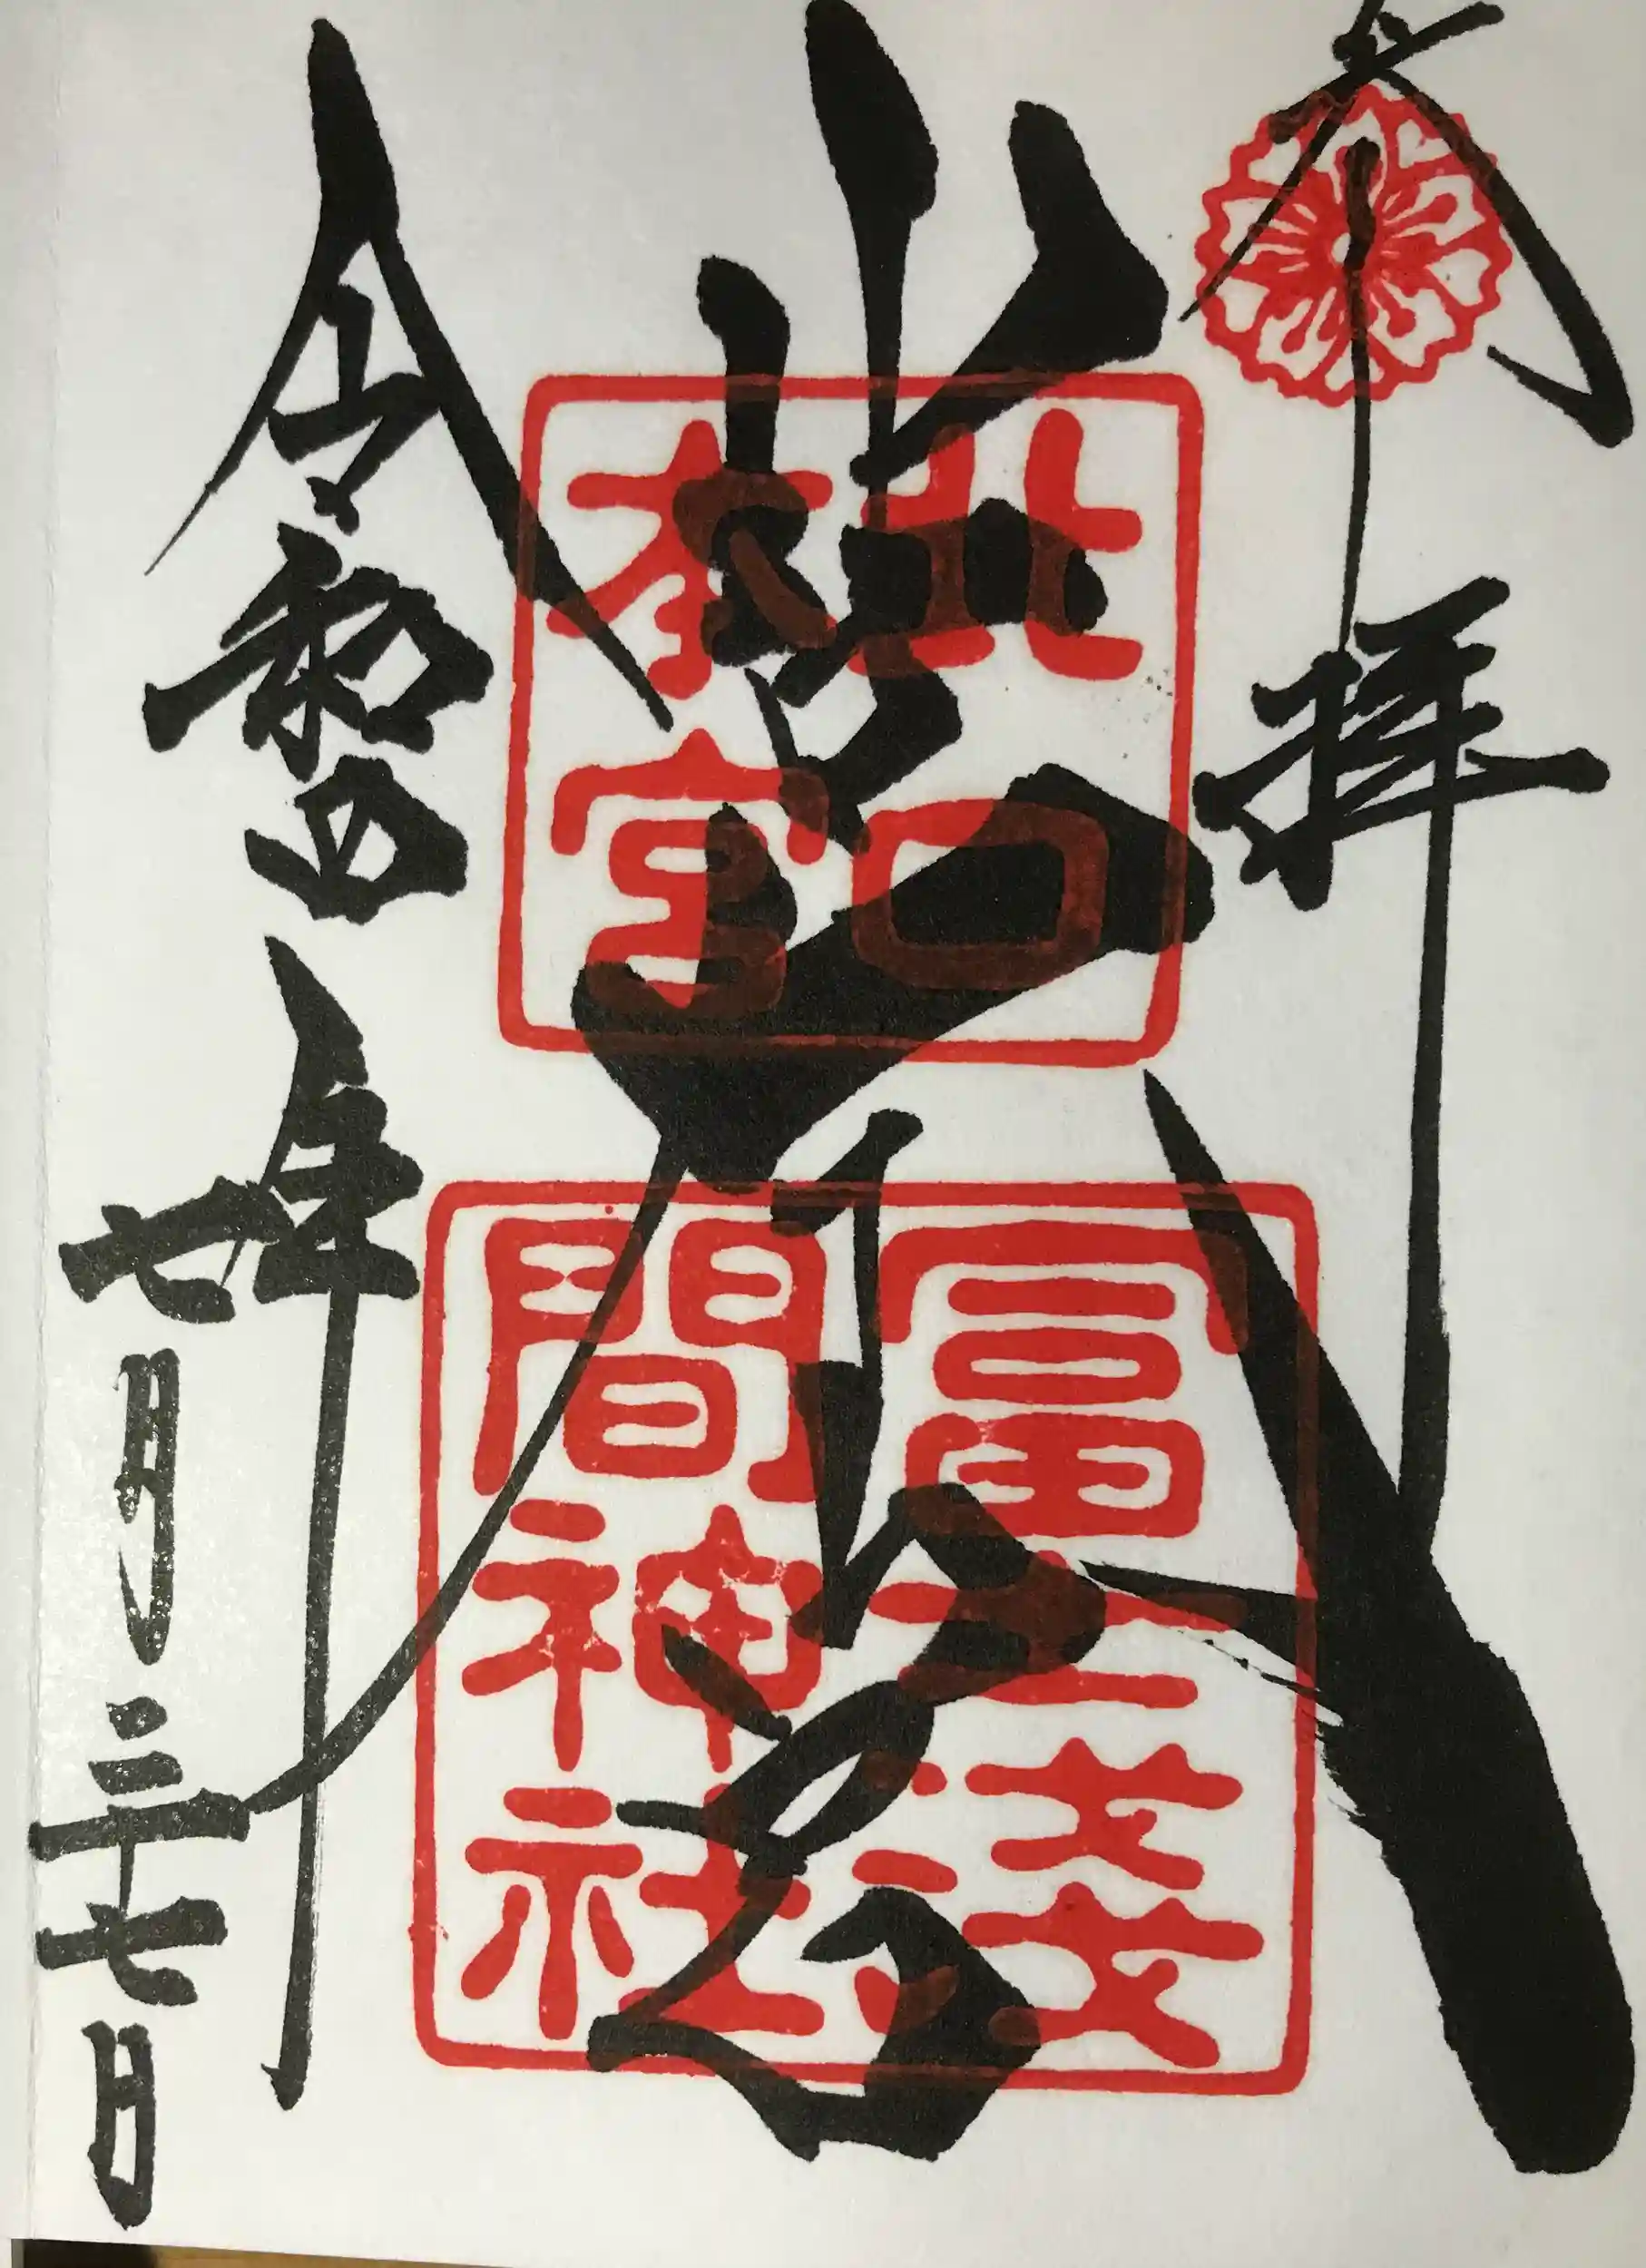 奉拝
北口
本宮
冨士淺
間神社
令和四年
七月二十七日